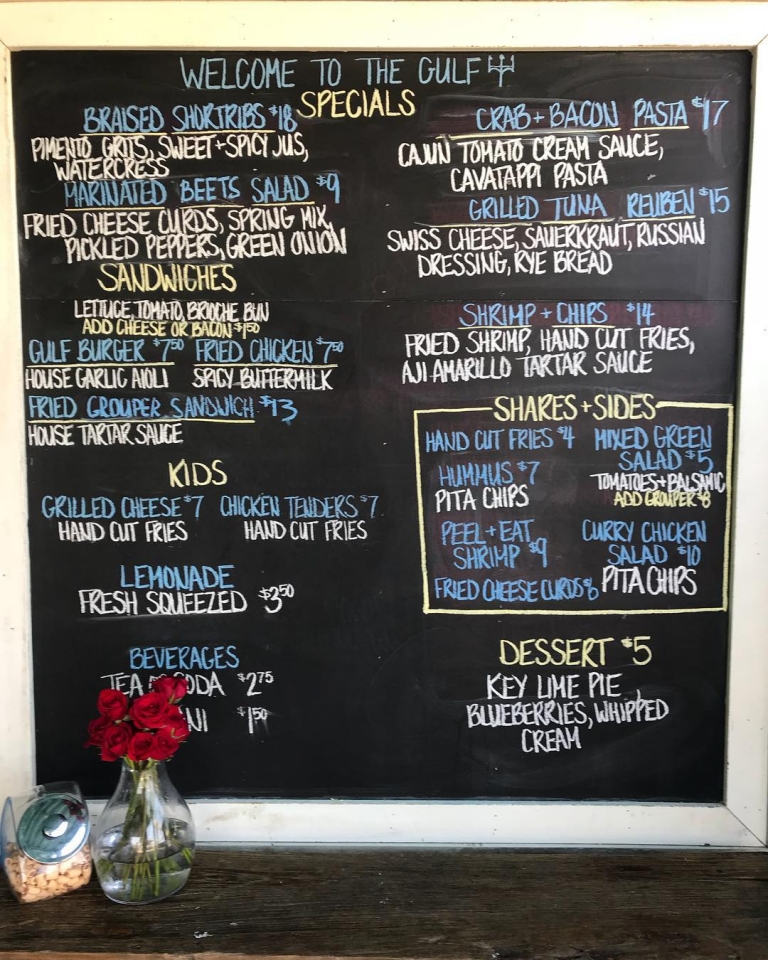 WELCOME TO THE GULF
SPECIALS
BRAISED SHORTRIBS $18
PIMENTO GRITS, SWEET+SPICY JUS,
WATERCRESS
MARINATED BEETS SALAD $9
FRIED CHEESE CURDS, SPRING MIX,
PICKLED PEPPERS, GREEN ONION
CRAB + BACON PASTA $17
CAJUN TOMATO CREAM SAUCE,
CAVATAPPI PASTA
GRILLED TUNA REUBEN $15
SWISS CHEESE, SAUERKRAUT, RUSSIAN
DRESSING, RYE BREAD
SHRIMP + CHIPS $14
FRIED SHRIMP, HAND CUT FRIES,
AJI AMARILLO TARTAR SAUCE
SANDWICHES
LETTUCE, TOMATO, BRIOCHE BUN
ADD CHEESE OR BACON $1.50
GULF BURGER $7.50 FRIED CHICKEN $7.50
HOUSE GARLIC AIOLI SPICY BUTTERMILK
FRIED GROUPER SANDWICH $13
HOUSE TARTAR SAUCE
KIDS
GRILLED CHEESE $7 CHICKEN TENDERS $7
HAND CUT FRIES HAND CUT FRIES
LEMONADE
FRESH SQUEEZED $3.50
BEVERAGES
TEA SODA $2.75
$1.50
SHARES + SIDES
HAND CUT FRIES $4
HUMMUS $7
PITA CHIPS
PEEL + EAT
SHRIMP $9
FRIED CHEESE CURDS $6
MIXED GREEN
SALAD $5
TOMATOES + BALSAMIC
ADD GROUPER $8
CURRY CHICKEN
SALAD $10
PITA CHIPS
DESSERT $5
KEY LIME PIE,
BLUEBERRIES, WHIPPED
CREAM